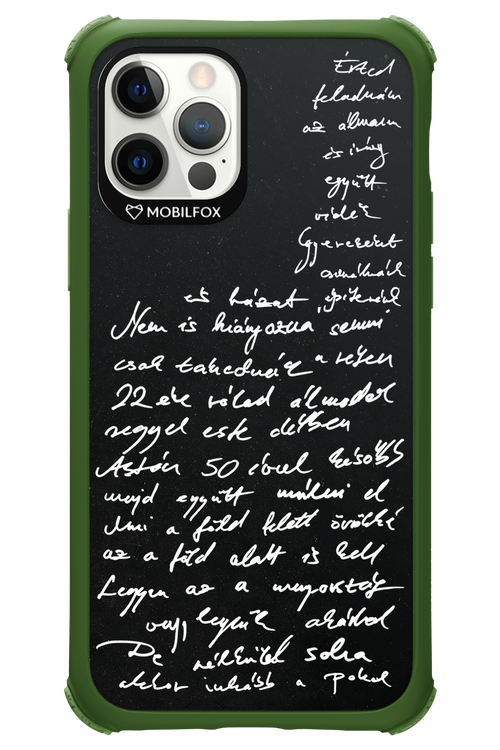 MOBILFOX
Érted
feladnám
az álmom
és irány
együtt
vidék
Gyerekeket
csinálnánk
és házat építenénk
Nem is hiányozna semmi
csak takednénk a réten
22 éve rólad álmodok
reggel este délben
Aztán 50 évvel később
majd együtt múlni el
Ami a föld felett örökké
az a föld alatt is kell
Legyen az a mennyország
vagy legyünk akárhol
De nélküled soha
akkor inkább a pokol